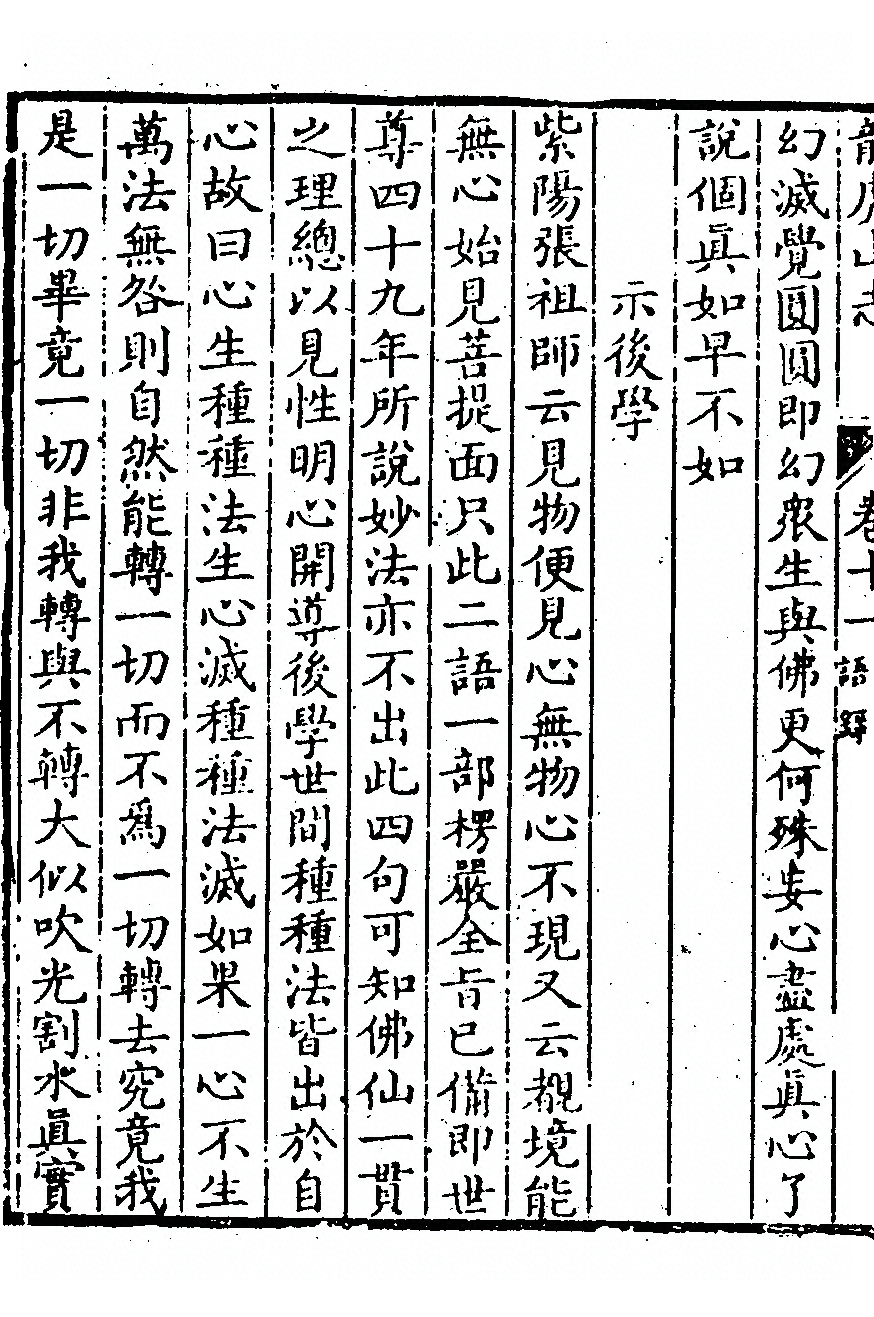 龍虎山志 卷十一 語録
幻滅覺圓圓即幻衆生與佛更何殊妄心盡處眞心了
說個眞如早不如
示後學
紫陽張祖師云見物便見心無物心不現又云覩境能
無心始見菩提面只此二語一部楞嚴全旨已備即世
尊四十九年所說妙法亦不出此四句可知佛仙一貫
之理總以見性明心開導後學世間種種法皆出於自
心故曰心生種種法生心滅種種法滅如果一心不生
萬法無咎則自然能轉一切而不爲一切轉去究竟我
是一切畢竟一切非我轉與不轉大似吹光割水眞實